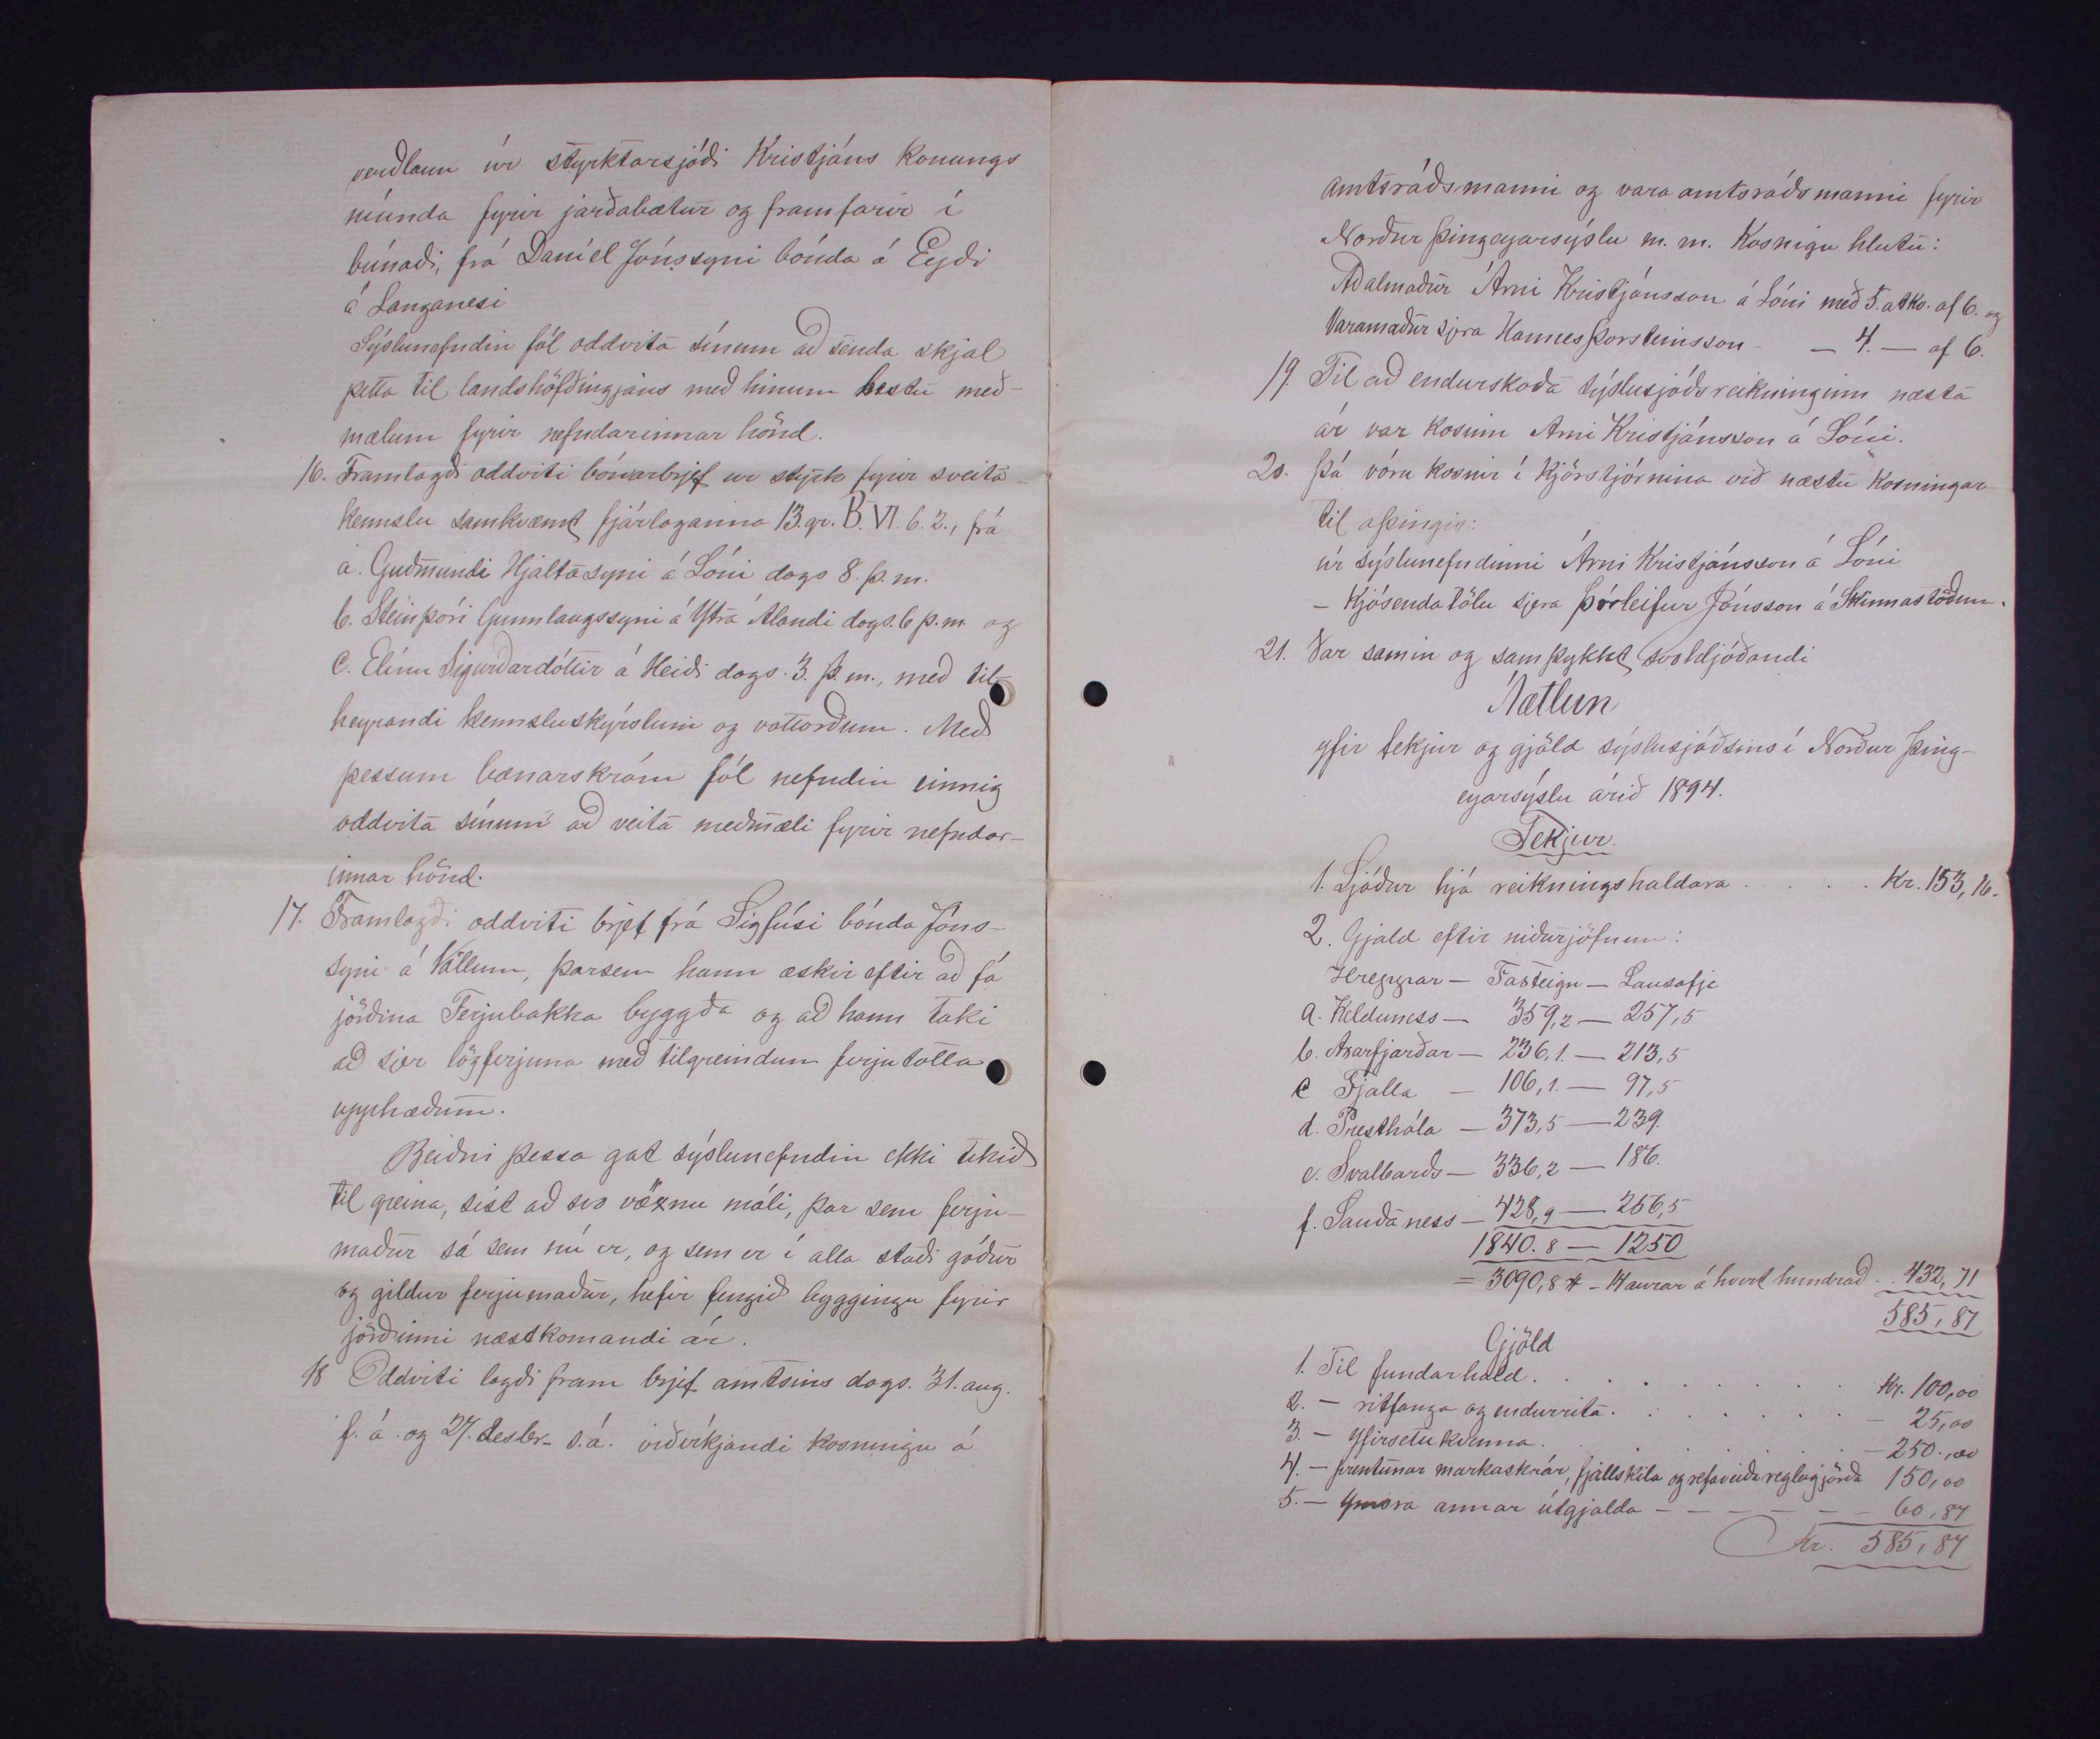 verðlaun úr styrktarsjóði Kristjáns konungs
níunda fyrir jarðabætur og framfarir í
búnaði, frá Daníel Jónssyni bónda á Eyði
á Langanesi
Sýslunefndin fól oddvita sínum að senda skjal
þetta til landshöfðingjans með hinum bestu með-
mælum fyrir nefndarinnar hönd.
16. Framlagði oddviti bónarbrjef um styrk fyrir sveita-
kennslu samkvæmt fjárloganna 13. gr. B. VI. b. 2., frá
a. Guðmundi Hjaltasyni á Lóni dags 8. þ. m.
b. Steinþóri Gunnlaugssyni á Ytra Álandi dags. 6 þ. m. og
c. Elínu Sigurðardóttir á Heiði dags. 3. þ. m., með til-
heyrandi kennsluskýrslum og vottorðum. Með
þessum bænarskrám fól nefndin einnig
oddvita sínum að veita meðmæli fyrir nefndar-
innar hönd.
17. Framlagði oddviti brjef frá Sigfúsi bónda Jóns-
syni á Völlum, þarsem hann æskir eftir að fá
jörðina Ferjubakka byggða og að hann taki
að sjer lögferjuna með tilgreindum ferjutolla
upphæðum.
Beiðni þessa gat sýslunefndin ekki tekið
til greina, síst að svo vöxnu máli, þar sem ferju-
maður sá sem nú er, og sem er í alla staði góður
og gildur ferjumaður, hefir fengið byggingu fyrir
jörðinni næstkomandi ár.
18 Oddviti lagði fram brjef amtsins dags. 31. aug.
f. á. og 27. desbr. s. á. viðvíkjandi kosningu á
amtsráðsmanni og vara amtsráðsmanni fyrir
Norður Þingeyarsýslu m. m. Kosnigu hlutu:
Aðalmaður Árni Kristjánsson á Lóni með 5. atkv. af 6. og
Varamaður sjera Hannes Þorsteinsson - — 4. — af 6.
19. Til að endurskoða sýslusjóðsreikninginn næsta
ár var kosinn Árni Kristjánsson á Lóni.
20. Þá vóru kosnir í kjörstjórnina við næstu kosningar
til alþingis:
úr sýslunefndinni Árni Kristjánsson á Lóni
— kjósendatölu sjera Þorleifur Jónsson á Skinnastöðum.
21. Var samin og samþykkt svohljóðandi
Áætlun
yfir tekjur og gjöld sýslusjóðsins í Norður Þing-
eyarsýslu árið 1894.
Tekjur.
1. Sjóður hjá reikningshaldara . . . . . Kr. 153, 16.
2. Gjald eftir niðurjöfnun:
Hreppar — Fasteign — Lausafje
a. Kelduness — 359,2 — 257,5
b. Axarfjarðar — 236,1. — 213,5
c Fjalla — 106,1. — 97,5
d. Presthóla — 373,5 — 239.
e. Svalbarðs — 336,2 — 186.
f. Sauðaness — 428,9 — 256,5
1840.8 — 1250
= 3090,8 — 14 aurar á hvert hundrað . . 432,71
585,87
Gjöld
1. Til fundarhald . . . . . . . . Kr. 100,00
2. — ritfanga og endurrita . . . . . . — 25,00
3. — yfirsetukvenna . . . . . . . — 250.,00
4. — prentunar markaskrár, fjallskila og refaveiða reglugjörða 150,00
5. — ymsra annar útgjalda — — — — — 60,87
Kr. 585,87